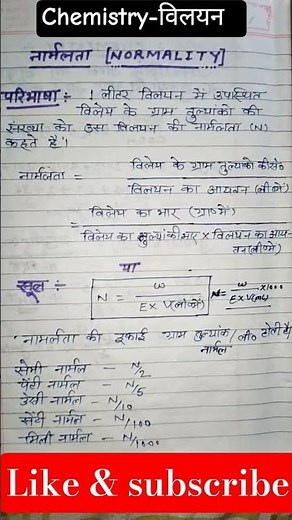 Chemistry-विलयन
नार्मलता [NORMALITY]
परिभाषा :- 1 लीटर विलयन में उपस्थित
विलेय के ग्राम तुल्यांको की
संख्या को उस विलयन की नार्मलता (N)
कहते है।
नार्मलता = विलेय के ग्राम तुल्यांको की सं०
विलयन का आयतन (ली०में)
= विलेय का भार (ग्रा०में)
विलेय का तुल्यांकी भार × विलयन का आय-
तन (ली०में)
या
सूत्र :- N = W / E × V(ली०में) N = W / E × V(ml) × 1000
नामर्लता की इकाई ग्राम तुल्यांक / ली० होती है/
नार्मल
सेमी नार्मल - N/2
पेंटी नार्मल - N/5
डेसी नार्मल - N/10
सेंटी नार्मल - N/100
मिली नार्मल - N/1000
Like & subscribe